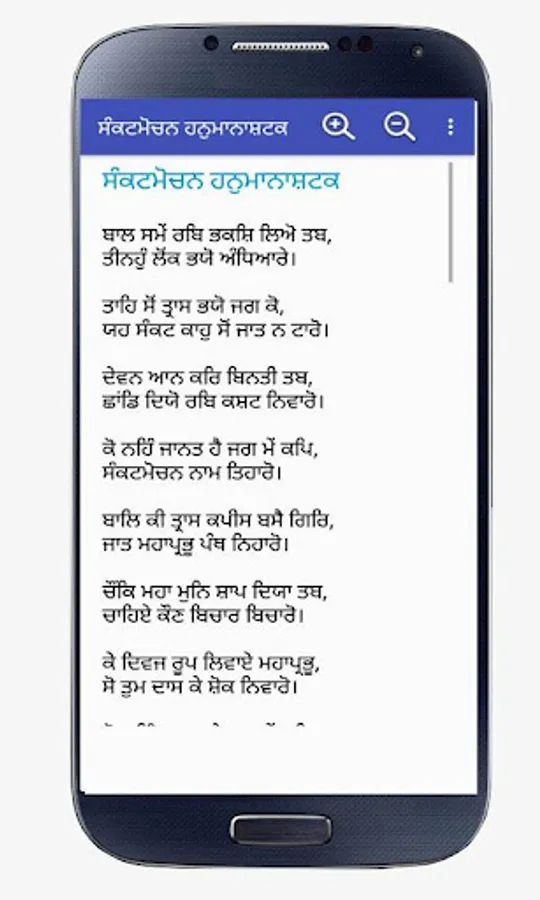 ਸੰਕਟਮੋਚਨ ਹਨੁਮਾਨਾਸ਼ਟਕ
ਸੰਕਟਮੋਚਨ ਹਨੁਮਾਨਾਸ਼ਟਕ
ਬਾਲ ਸਮੇਂ ਰਬਿ ਭਕਸ਼ਿ ਲਿਯੋ ਤਬ,
ਤੀਨਹੁੰ ਲੋਂਕ ਭਯੋ ਅੰਧਿਆਰੇ।
ਤਾਹਿ ਸੋਂ ਤ੍ਰਾਸ ਭਯੋ ਜਗ ਕੋ,
ਯਹ ਸੰਕਟ ਕਾਹੁ ਸੋਂ ਜਾਤ ਨ ਟਾਰੋ।
ਦੇਵਨ ਆਨ ਕਰਿ ਬਿਨਤੀ ਤਬ,
ਛਾਂਡਿ ਦਿਯੋ ਰਬਿ ਕਸ਼ਟ ਨਿਵਾਰੋ।
ਕੋ ਨਹਿੰ ਜਾਨਤ ਹੈ ਜਗ ਮੇਂ ਕਪਿ,
ਸੰਕਟਮੋਚਨ ਨਾਮ ਤਿਹਾਰੋ।
ਬਾਲਿ ਕੀ ਤ੍ਰਾਸ ਕਪੀਸ ਬਸੈ ਗਿਰਿ,
ਜਾਤ ਮਹਾਪ੍ਰਭੂ ਪੰਥ ਨਿਹਾਰੋ।
ਚੌਂਕਿ ਮਹਾ ਮੁਨਿ ਸ਼ਾਪ ਦਿਯਾ ਤਬ,
ਚਾਹਿਏ ਕੌਣ ਬਿਚਾਰ ਬਿਚਾਰੋ।
ਕੇ ਦਿਵਜ ਰੂਪ ਲਿਵਾਏ ਮਹਾਪ੍ਰਭੂ,
ਸੋ ਤੁਮ ਦਾਸ ਕੇ ਸ਼ੋਕ ਨਿਵਾਰੋ।